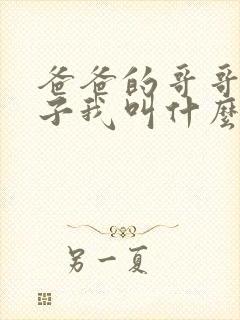 爸爸的哥哥
子我叫什麼
另一夏